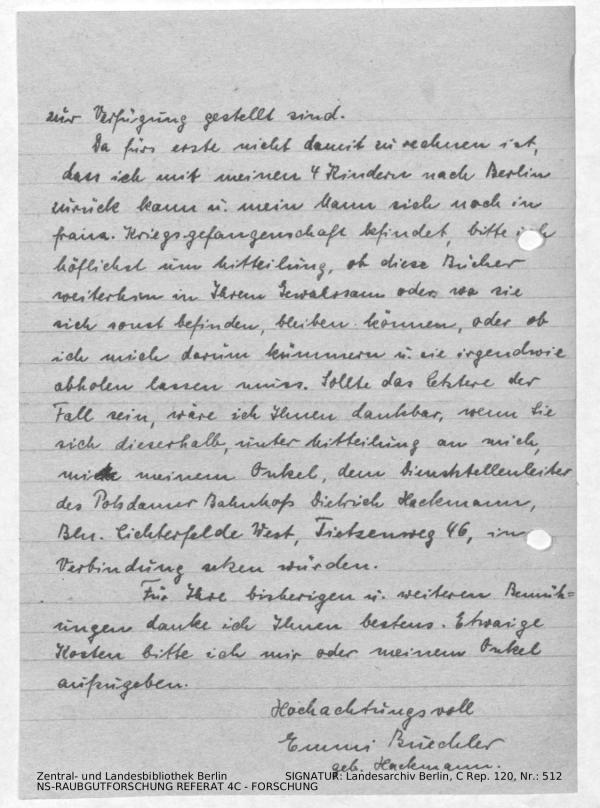 zur Verfügung gestellt sind.
Da fürs erste nicht damit zu rechnen ist,
dass ich mit meinen 4 Kindern nach Berlin
zurück kann u. mein Mann sich noch in
franz. Kriegsgefangenschaft befindet, bitte ich
höflichst um Mitteilung, ob diese Bücher
weiterhin in Ihrem Gewahrsam oder, wo sie
sich sonst befinden, bleiben können, oder ob
ich mich darum kümmern u. sie irgendwie
abholen lassen muss. Sollte das letztere der
Fall sein, wäre ich Ihnen dankbar, wenn Sie
sich dieserhalb, unter Mitteilung an mich,
mit meinem Onkel, dem Dienststellenleiter
des Potsdamer Bahnhofs Dietrich Hackmann,
Bln. Lichterfelde West, Tietzenweg 46, in
Verbindung setzen würden.
Für Ihre bisherigen u. weiteren Bemüh=
ungen danke ich Ihnen bestens. Etwaige
Kosten bitte ich mir oder meinem Onkel
aufzugeben.
Hochachtungsvoll
Emmi Buechler
geb. Hackmann.
Zentral- und Landesbibliothek Berlin SIGNATUR: Landesarchiv Berlin, C Rep. 120, Nr.: 512
NS-RAUBGUTFORSCHUNG REFERAT 4C - FORSCHUNG